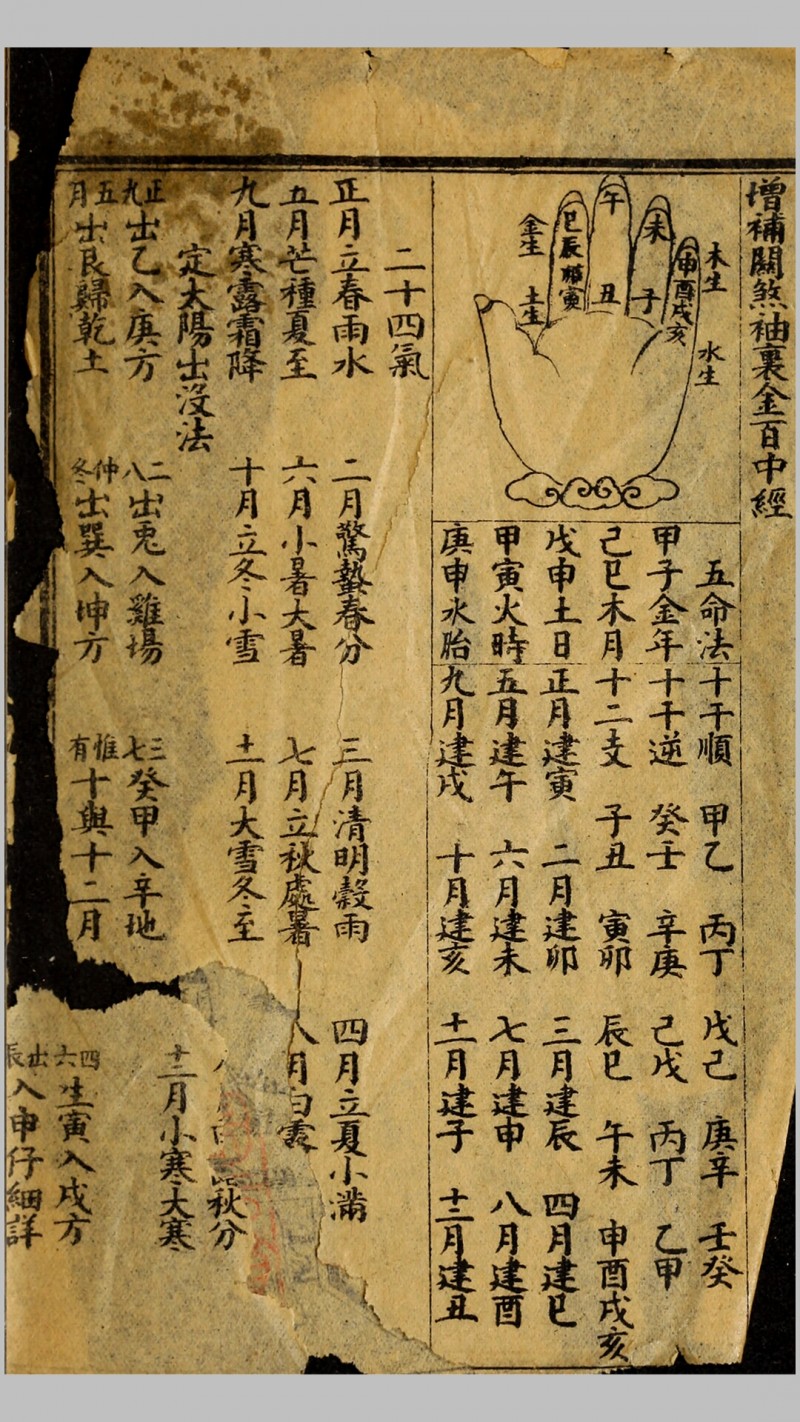 增補關煞袖裏金百中經
木生
水生
午
未
子
丑
申酉戌亥
巳辰卯寅
金生
土生
五命法
甲子金年
己巳木月
戊申土日
甲寅火時
庚申水胎
十干順 甲乙 丙丁 戊己 庚辛 壬癸
十干逆 癸壬 辛庚 己戊 丙丁 乙甲
十二支 子丑 寅卯 辰巳 午未 申酉戌亥
正月建寅 二月建卯 三月建辰 四月建巳
五月建午 六月建未 七月建申 八月建酉
九月建戌 十月建亥 十一月建子 十二月建丑
二十四氣
正月立春雨水 二月驚蟄春分 三月清明穀雨 四月立夏小滿
五月芒種夏至 六月小暑大暑 七月立秋處暑 八月白露
秋分
九月寒露霜降 十月立冬小雪 十一月大雪冬至 十二月小寒大寒
定太陽出没法
正九出乙入庚方 二八出兎入雞場 三七癸甲入辛地 四六生寅入戌方
五月出艮歸乾土 仲冬出巽入坤方 惟有十與十二月 出辰入申仔細詳